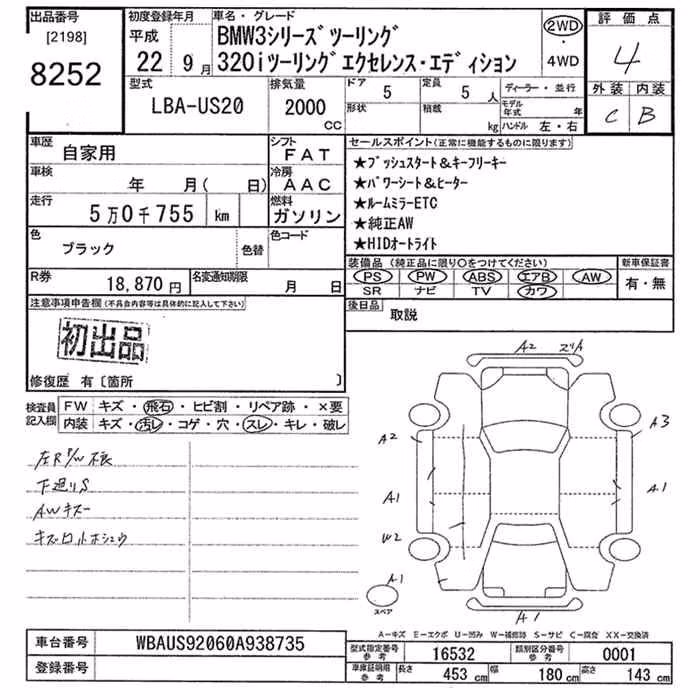 出品番号 初度登録年月 車名・グレード 評価点
[2198] 平成 BMW3シリーズツーリング 2WD
8252 22 9月 320iツーリングエクセレンス・エディション ・ 4WD 4
型式 排気量 ドア 5 定員 5人 ディーラー・並行 外装 内装
LBA-US20 2000 CC 形状 積載 kg モデル年式 年 C B
ハンドル 左・右
車歴 自家用 シフト FAT セールスポイント(正常に機能するものに限ります)
車検 年 月( 日) 冷房 AAC ★プッシュスタート&キーフリーキー
★パワーシート&ヒーター
走行 5万0千755 km 燃料 ガソリン ★ルームミラーETC
★純正AW
色 ブラック 色替 色コード ★HIDオートライト
装備品(純正品に限り○をつけてください) 新車保証書
R券 18,870円 名変通知期限 月 日 PS PW ABS エアB AW 有・無
SR ナビ TV カワ
注意事項申告欄(不具合内容等は具体的に記入して下さい) 後日品 取説
初出品
修復歴 有〔箇所 〕
検査員記入欄 FW キズ・飛石・ヒビ割・リペア跡・×要
内装 キズ・汚レ・コゲ・穴・スレ・キレ・破レ
下廻りS
AWキズ
A2 スリA
A2 A3
A1 A1
W2
A1 スペア
A1
A-キズ E-エクボ U-凹み W-補修跡 S-サビ C-腐食 XX-交換済
車台番号 WBAUS92060A938735 型式指定番号 参考 16532 類別区分番号 参考 0001
登録番号 車庫証明用 参考 長さ 453 cm 幅 180 cm 高さ 143 cm